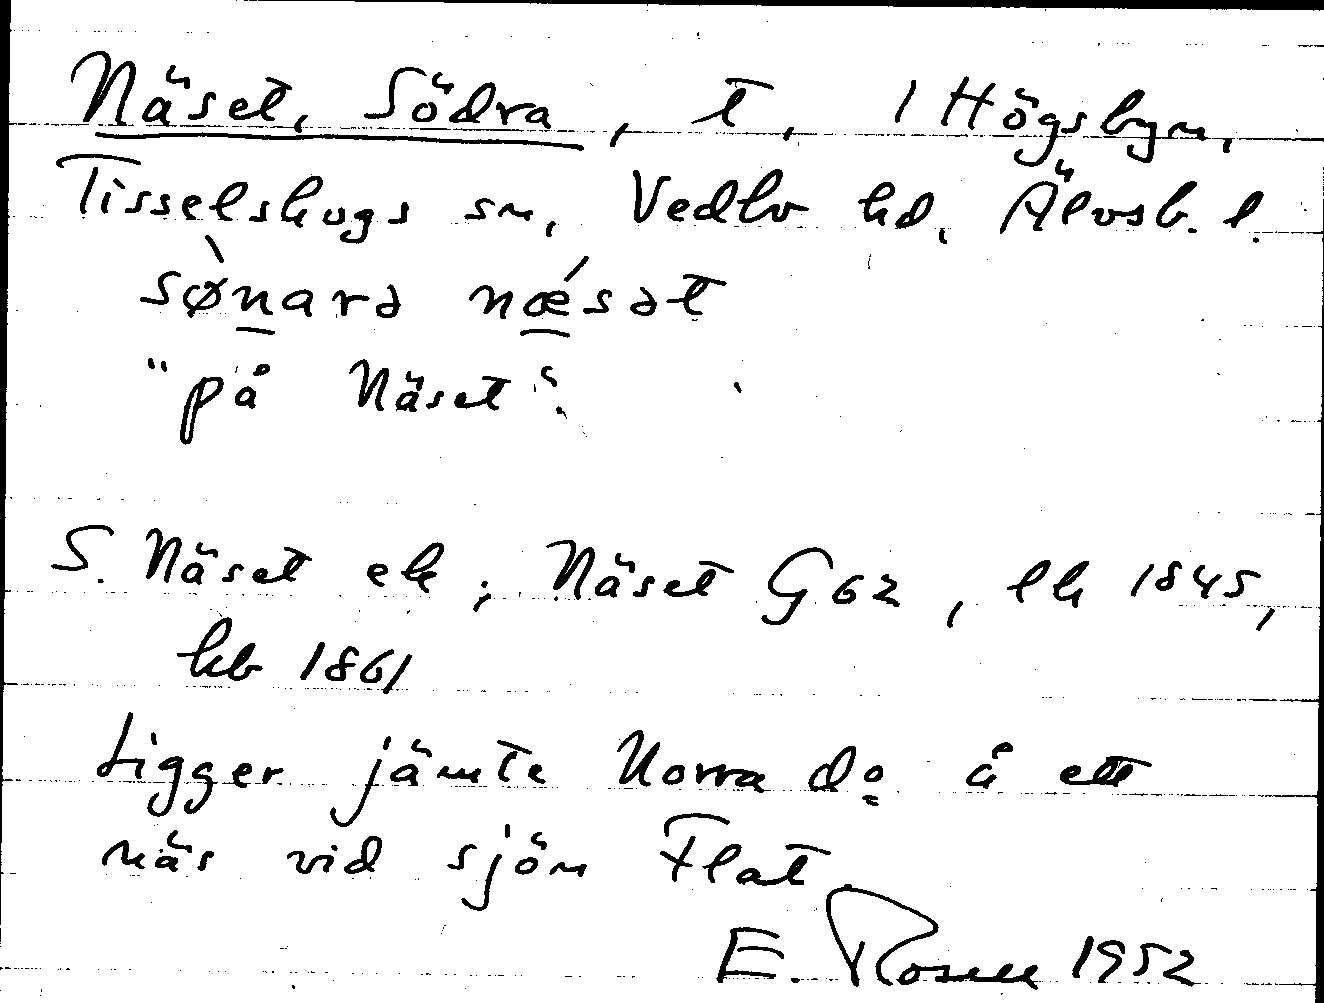 Näset, Södra, t, 1 Högsbyn,
Tisselskogs sn, Vedbo hd, Älvsb. l.
sø̀narə nǽsət
"på Näset".
S. Näset ek; Näset G 62, lk 1845,
kb 1861
Ligger jämte Norra do å ett
näs vid sjön Flat
E. Rosell 1952